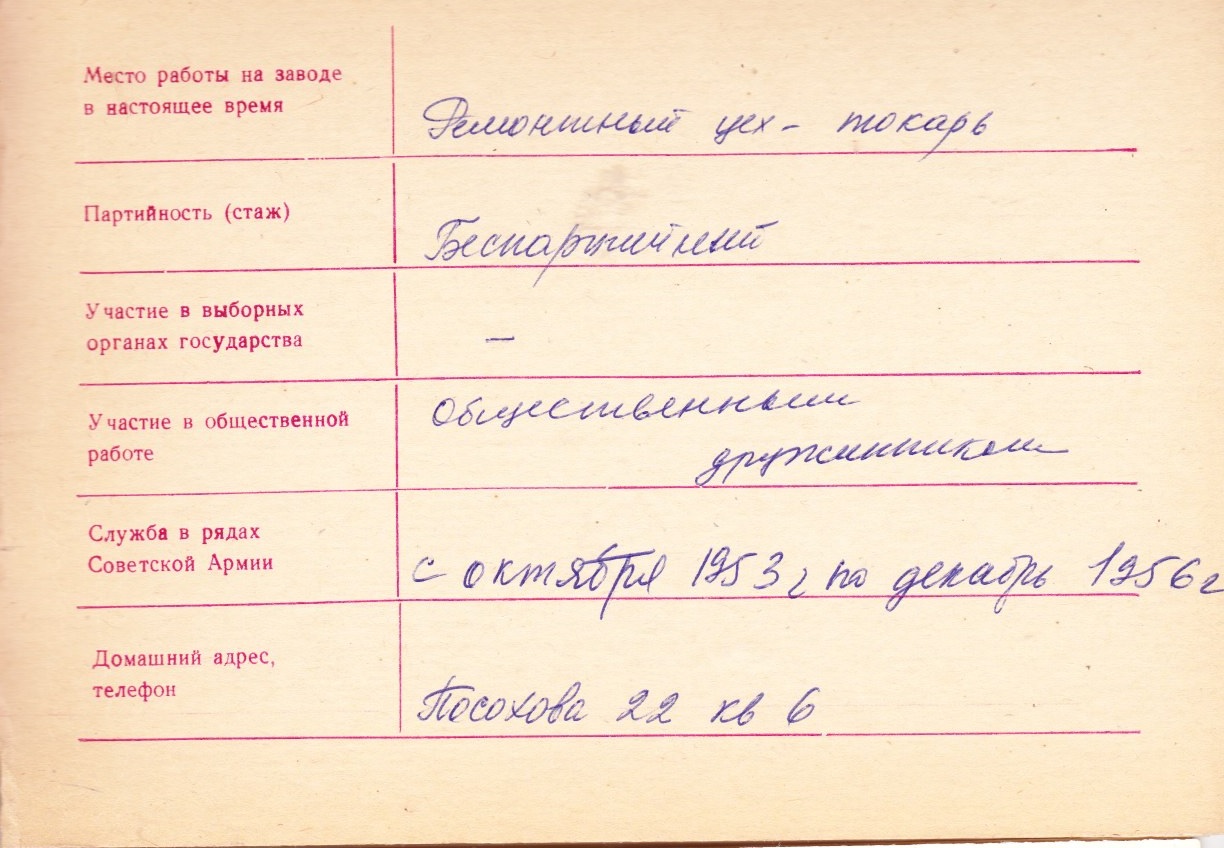 Место работы на заводе
в настоящее время
Ремонтный цех - токарь
Партийность (стаж)
Беспартийный
Участие в выборных
органах государства
—
Участие в общественной
работе
Общественным
дружинником
Служба в рядах
Советской Армии
с октября 1953 г по декабрь 1956 г
Домашний адрес,
телефон
Посохова 22 кв 6